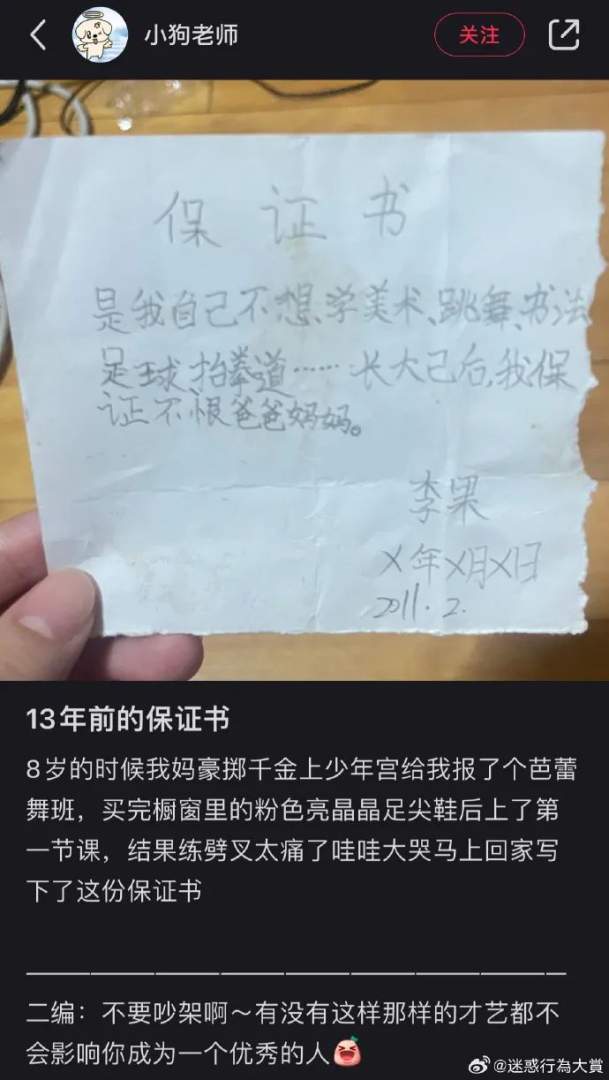 小狗老师
关注
保证书
是我自己不想学美术、跳舞、书法
足球、抬拳道……长大己后,我保
证不恨爸爸妈妈。
李果
X年X月X日
2011.2.
13年前的保证书
8岁的时候我妈豪掷千金上少年宫给我报了个芭蕾
舞班，买完橱窗里的粉色亮晶晶足尖鞋后上了第
一节课，结果练劈叉太痛了哇哇大哭马上回家写
下了这份保证书
二编：不要吵架啊～有没有这样那样的才艺都不
会影响你成为一个优秀的人
@迷惑行為大賞